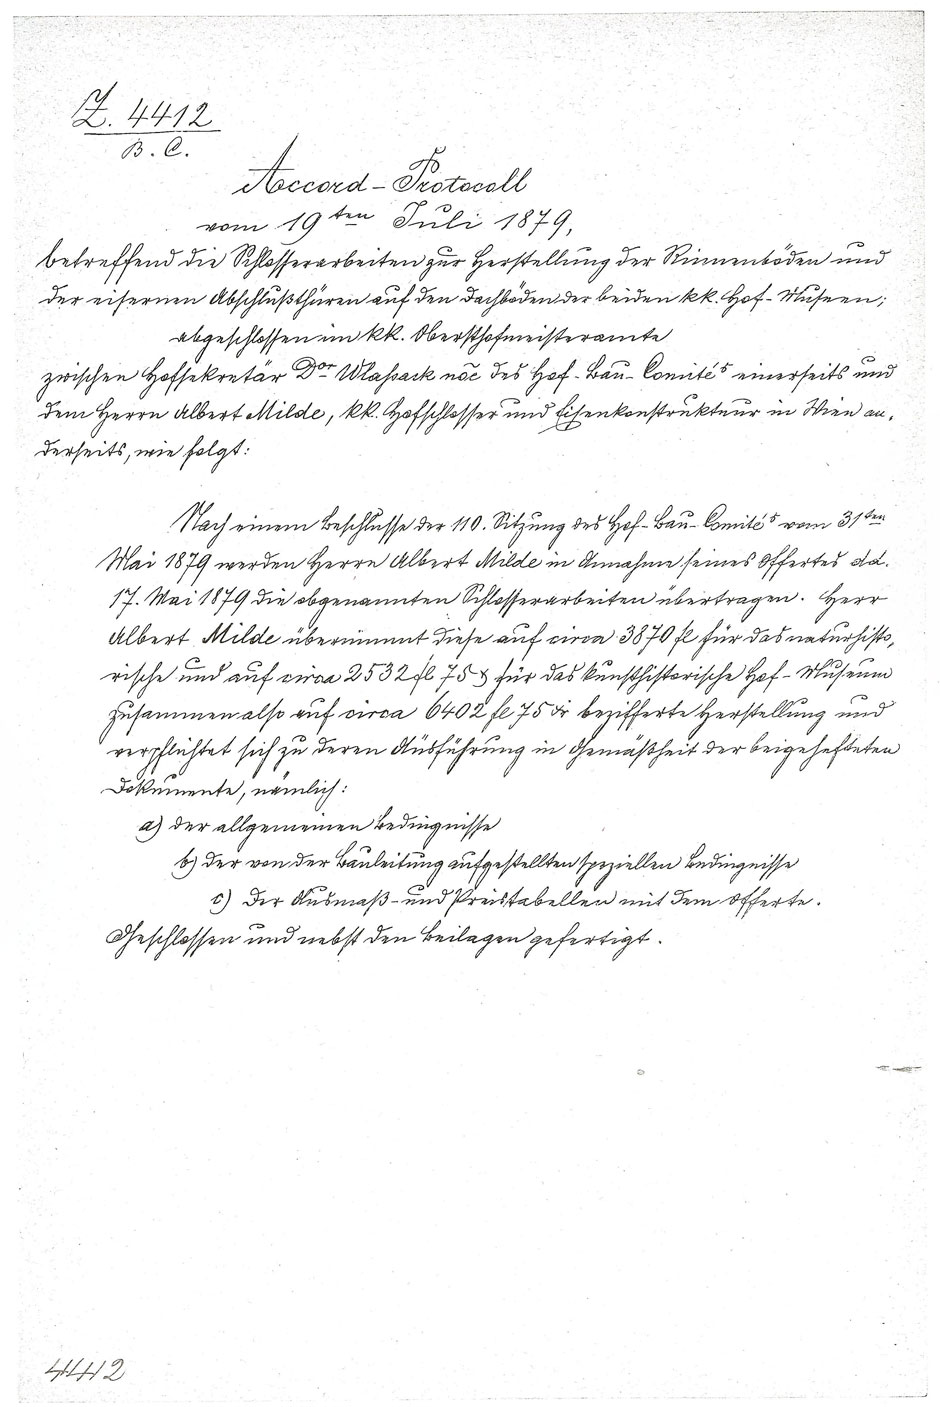 Z. 4412
B. C.
Accord-Protocoll
vom 19ten Juli 1879,
betreffend die Schlosserarbeiten zur Herstellung der Rinnenböden und
der eisernen Abschlußthüren auf den Dachböden der beiden kk. Hof-Museen;
abgeschlossen im kk. Obersthofmeisteramte
zwischen Hofsekretär Dor Wlassack nōe des Hof-Bau-Comités einerseits und
dem Herrn Albert Milde, kk. Hofschlosser und Eisenkonstrukteur in Wien an,
derseits, wie folgt:
Nach einem Beschlusse der 110. Sitzung des Hof-Bau-Comités vom 31ten
Mai 1879 werden Herrn Albert Milde in Annahme seines Offertes dd.
17. Mai 1879 die obgenannten Schlosserarbeiten übertragen. Herr
Albert Milde übernimmt diese auf circa 3870 fl für das naturhisto,
rische und auf circa 2532 fl 75 für das kunsthistorische Hof-Museum
zusammen also auf circa 6402 fl 75 kr bezifferte Herstellung und
verpflichtet sich zu deren Ausführung in Gemäßheit der beigehefteten
Dokumente, nämlich:
a) der allgemeinen Bedingnisse
b) der von der Bauleitung aufgestellten speziellen Bedingnisse
c) der Ausmaß- und Preistabellen mit dem Offerte.
Geschlossen und nebst den Beilagen gefertigt.
4412